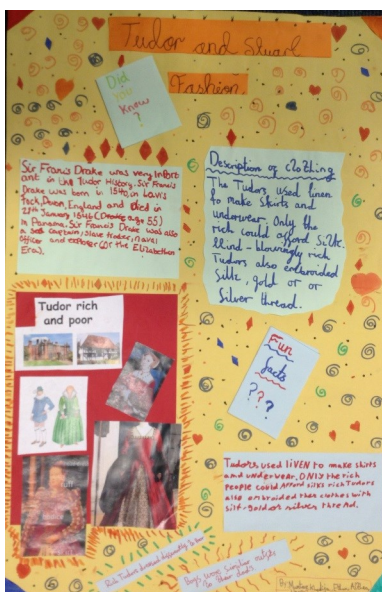 Tudor and Stuart
Fashion
Did
You
Know
?
Sir Francis Drake was very import
ant in the Tudor History. Sir Francis
Drake was born in 1540 in Tavis
tock, Devon, England and Died in
28th January 1596 (Drake age 55)
in Panama. Sir Francis Drake was also
a sea captain, slave trader, naval
officer and explorer (of the Elizabethan
Era).
Description of clothing
The Tudors used linen
to make shirts and
underwear. Only the
rich could afford silk.
rich
Tudors also embroided
silk, gold or or
silver thread.
Tudor rich
and poor
Fun
facts
???
Tudors used liNEN to make shirts
and underwear. ONLY the rich
people could afford silks rich Tudors
also embroided their clothes with
silk-gold or silver thread.
Rich Tudors dressed differently to
Boys wore similar outfits
to their dads
By